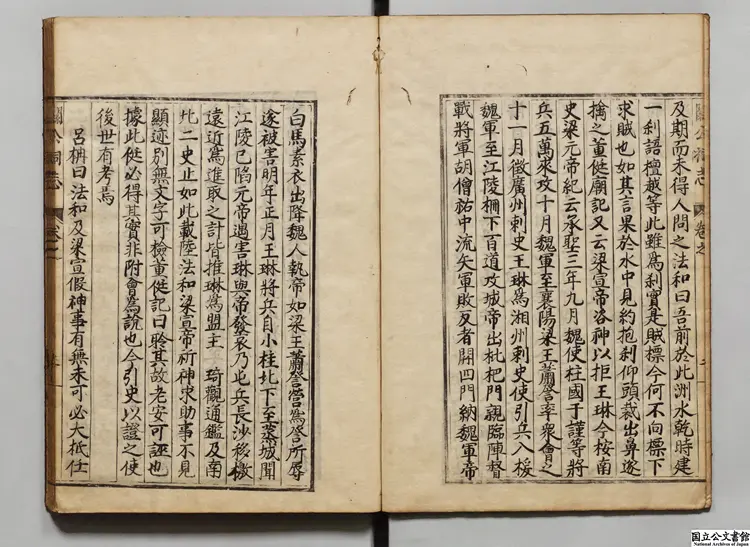 及期而未得人問之法和曰吾前於此洲水乾時建
一刹語檀越等此雖為刹實是賊標今何不向標下
求賊也如其言果於水中見約抱刹仰頭裁出鼻遂
擒之董侹廟記又云梁宣帝洛神以拒王琳今按南
史梁元帝紀云承聖三年九月魏使柱國于謹等將
兵五萬來攻十月魏軍至襄陽梁王蕭詧率衆會之
十一月徵廣州刺史王琳為湘州刺史使引兵入援
魏軍至江陵柵下百道攻城帝出枇杷門親臨陣督
戰將軍胡僧祐中流矢軍敗反者開四門納魏軍帝
白馬素衣出降魏人執帝如梁王蕭詧營為詧所辱
遂被害明年正月王琳將兵自小桂北下至蒸城聞
江陵已陷元帝遇害琳與帝發哀乃屯兵長沙移檄
遠近為進取之計皆推琳為盟主 琦觀通鑑及南
北二史止如此載陸法和梁宣帝祈神求助事不見
顯迹別無文字可檢董侹記曰聆其故老安可誣也
據此侹必得其實非附會為說也今引史以證之使
後世有考焉
呂柟曰法和及梁宣假神事有無未可必大抵任
關公祠志
卷之
国立公文書館
National Archives of Japan